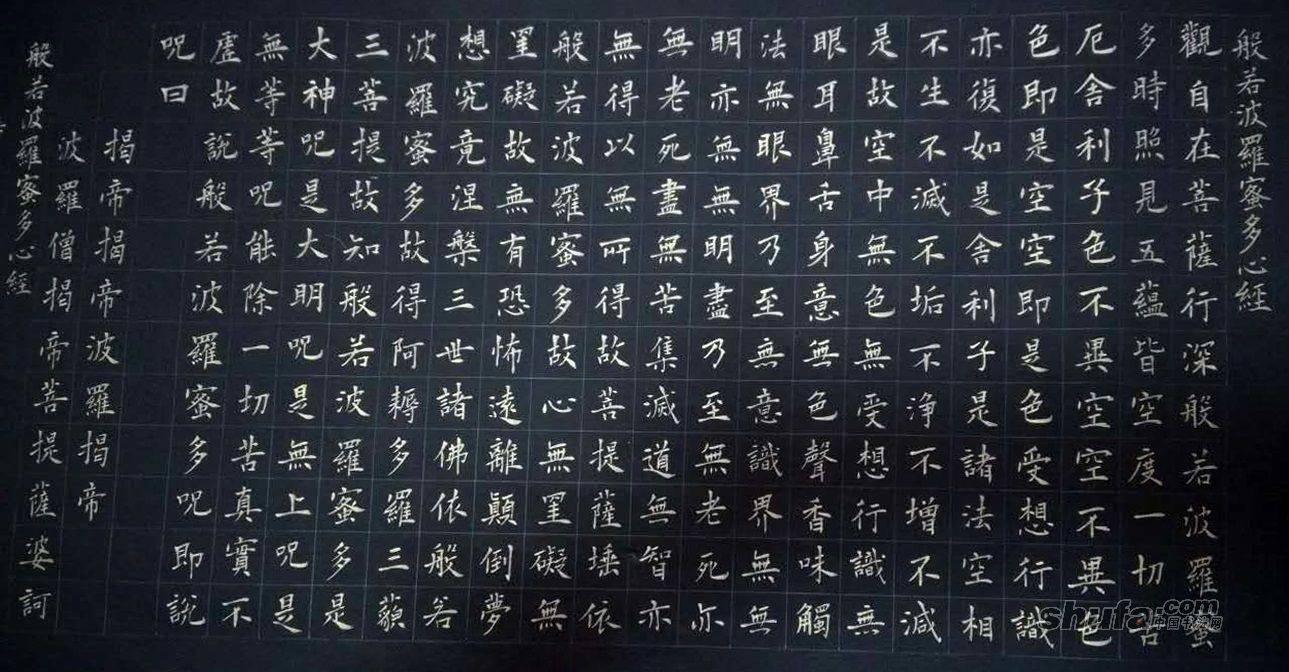 般若波羅蜜多心經
觀自在菩薩行深般若波羅蜜
多時照見五蘊皆空度一切苦
厄舍利子色不異空空不異色
色即是空空即是色受想行識
亦復如是舍利子是諸法空相
不生不滅不垢不净不增不減
是故空中無色無受想行識無
眼耳鼻舌身意無色聲香味觸
法無眼界乃至無意識界無無
明亦無無明盡乃至無老死亦
無老死盡無苦集滅道無智亦
無得以無所得故菩提薩埵依
般若波羅蜜多故心無罣礙無
罣礙故無有恐怖遠離顛倒夢
想究竟涅槃三世諸佛依般若
波羅蜜多故得阿耨多羅三藐
三菩提故知般若波羅蜜多是
大神呪是大明呪是無上呪是
無等等呪能除一切苦真實不
虛故說般若波羅蜜多呪即說
呪曰
揭帝揭帝波羅揭帝
波羅僧揭帝菩提薩婆訶
般若波羅蜜多心經
shufa.com
中国书法网